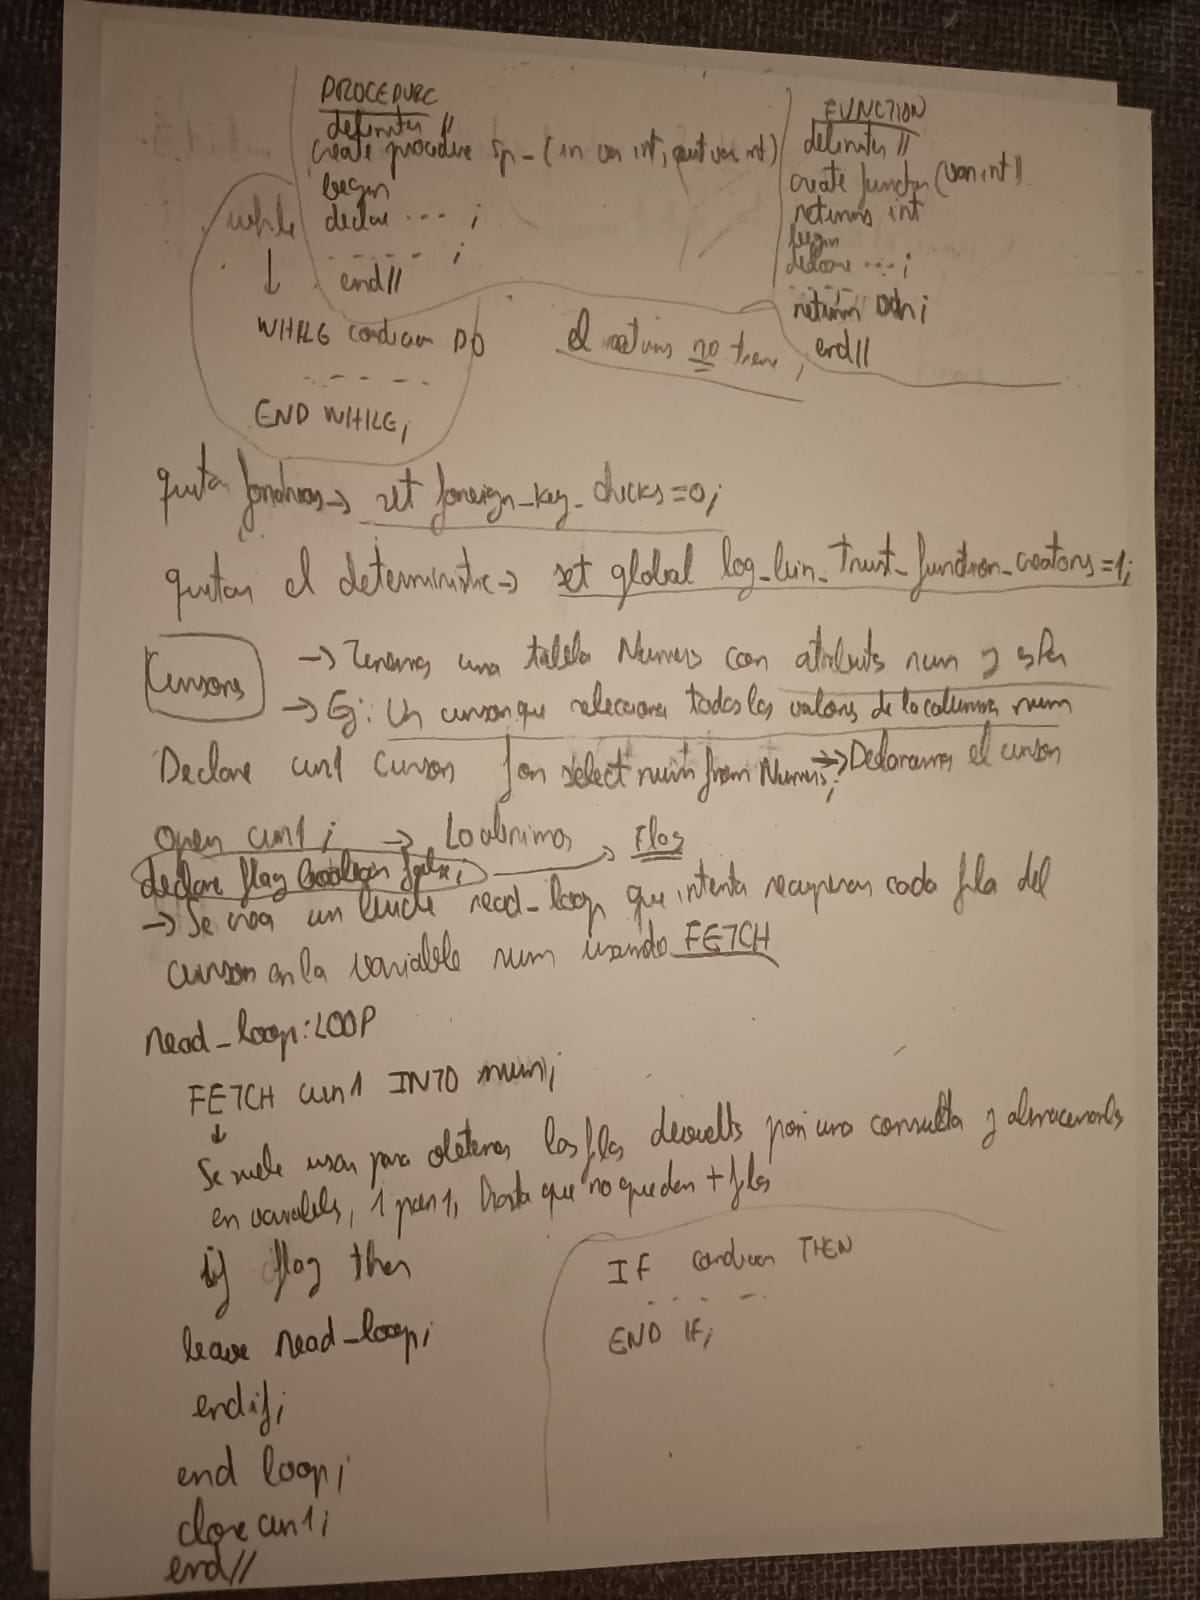 PROCEDURE
delimiter //
create procedure sp_(in var int, out var int)
begin
declare ... ;
------ ;
end//
FUNCTION
delimiter //
create function (var int)
returns int
begin
declare ... ;
------
return
end//
while
↓
WHILE condicion DO
-----
END WHILE;
el returns no tiene ;
quitar → set foreign_key_checks=0;
quitar el deterministic → set global log_bin_trust_function_creators=1;
Cursores
→ Tenemos una tabla Numeros con atributos num y
→ Eg: Un cursor que selecciona todos los valores de la columna num
Declare cur1 cursor for select num from Numeros; → Declaramos el cursor
open cur1; → Lo abrimos
declare flag boolean false; → Flag
→ Se crea un bucle read_loop que intenta recuperar cada fila del
cursor en la variable num usando FETCH
read_loop: LOOP
FETCH cur1 INTO num;
↓
Se suele usar para obtener las filas devueltas por una consulta y almacenarlas
en variables, 1 por 1, hasta que no queden + filas
if flag then
leave read_loop;
endif;
end loop;
close cur1;
end//
IF condicion THEN
-----
END IF;